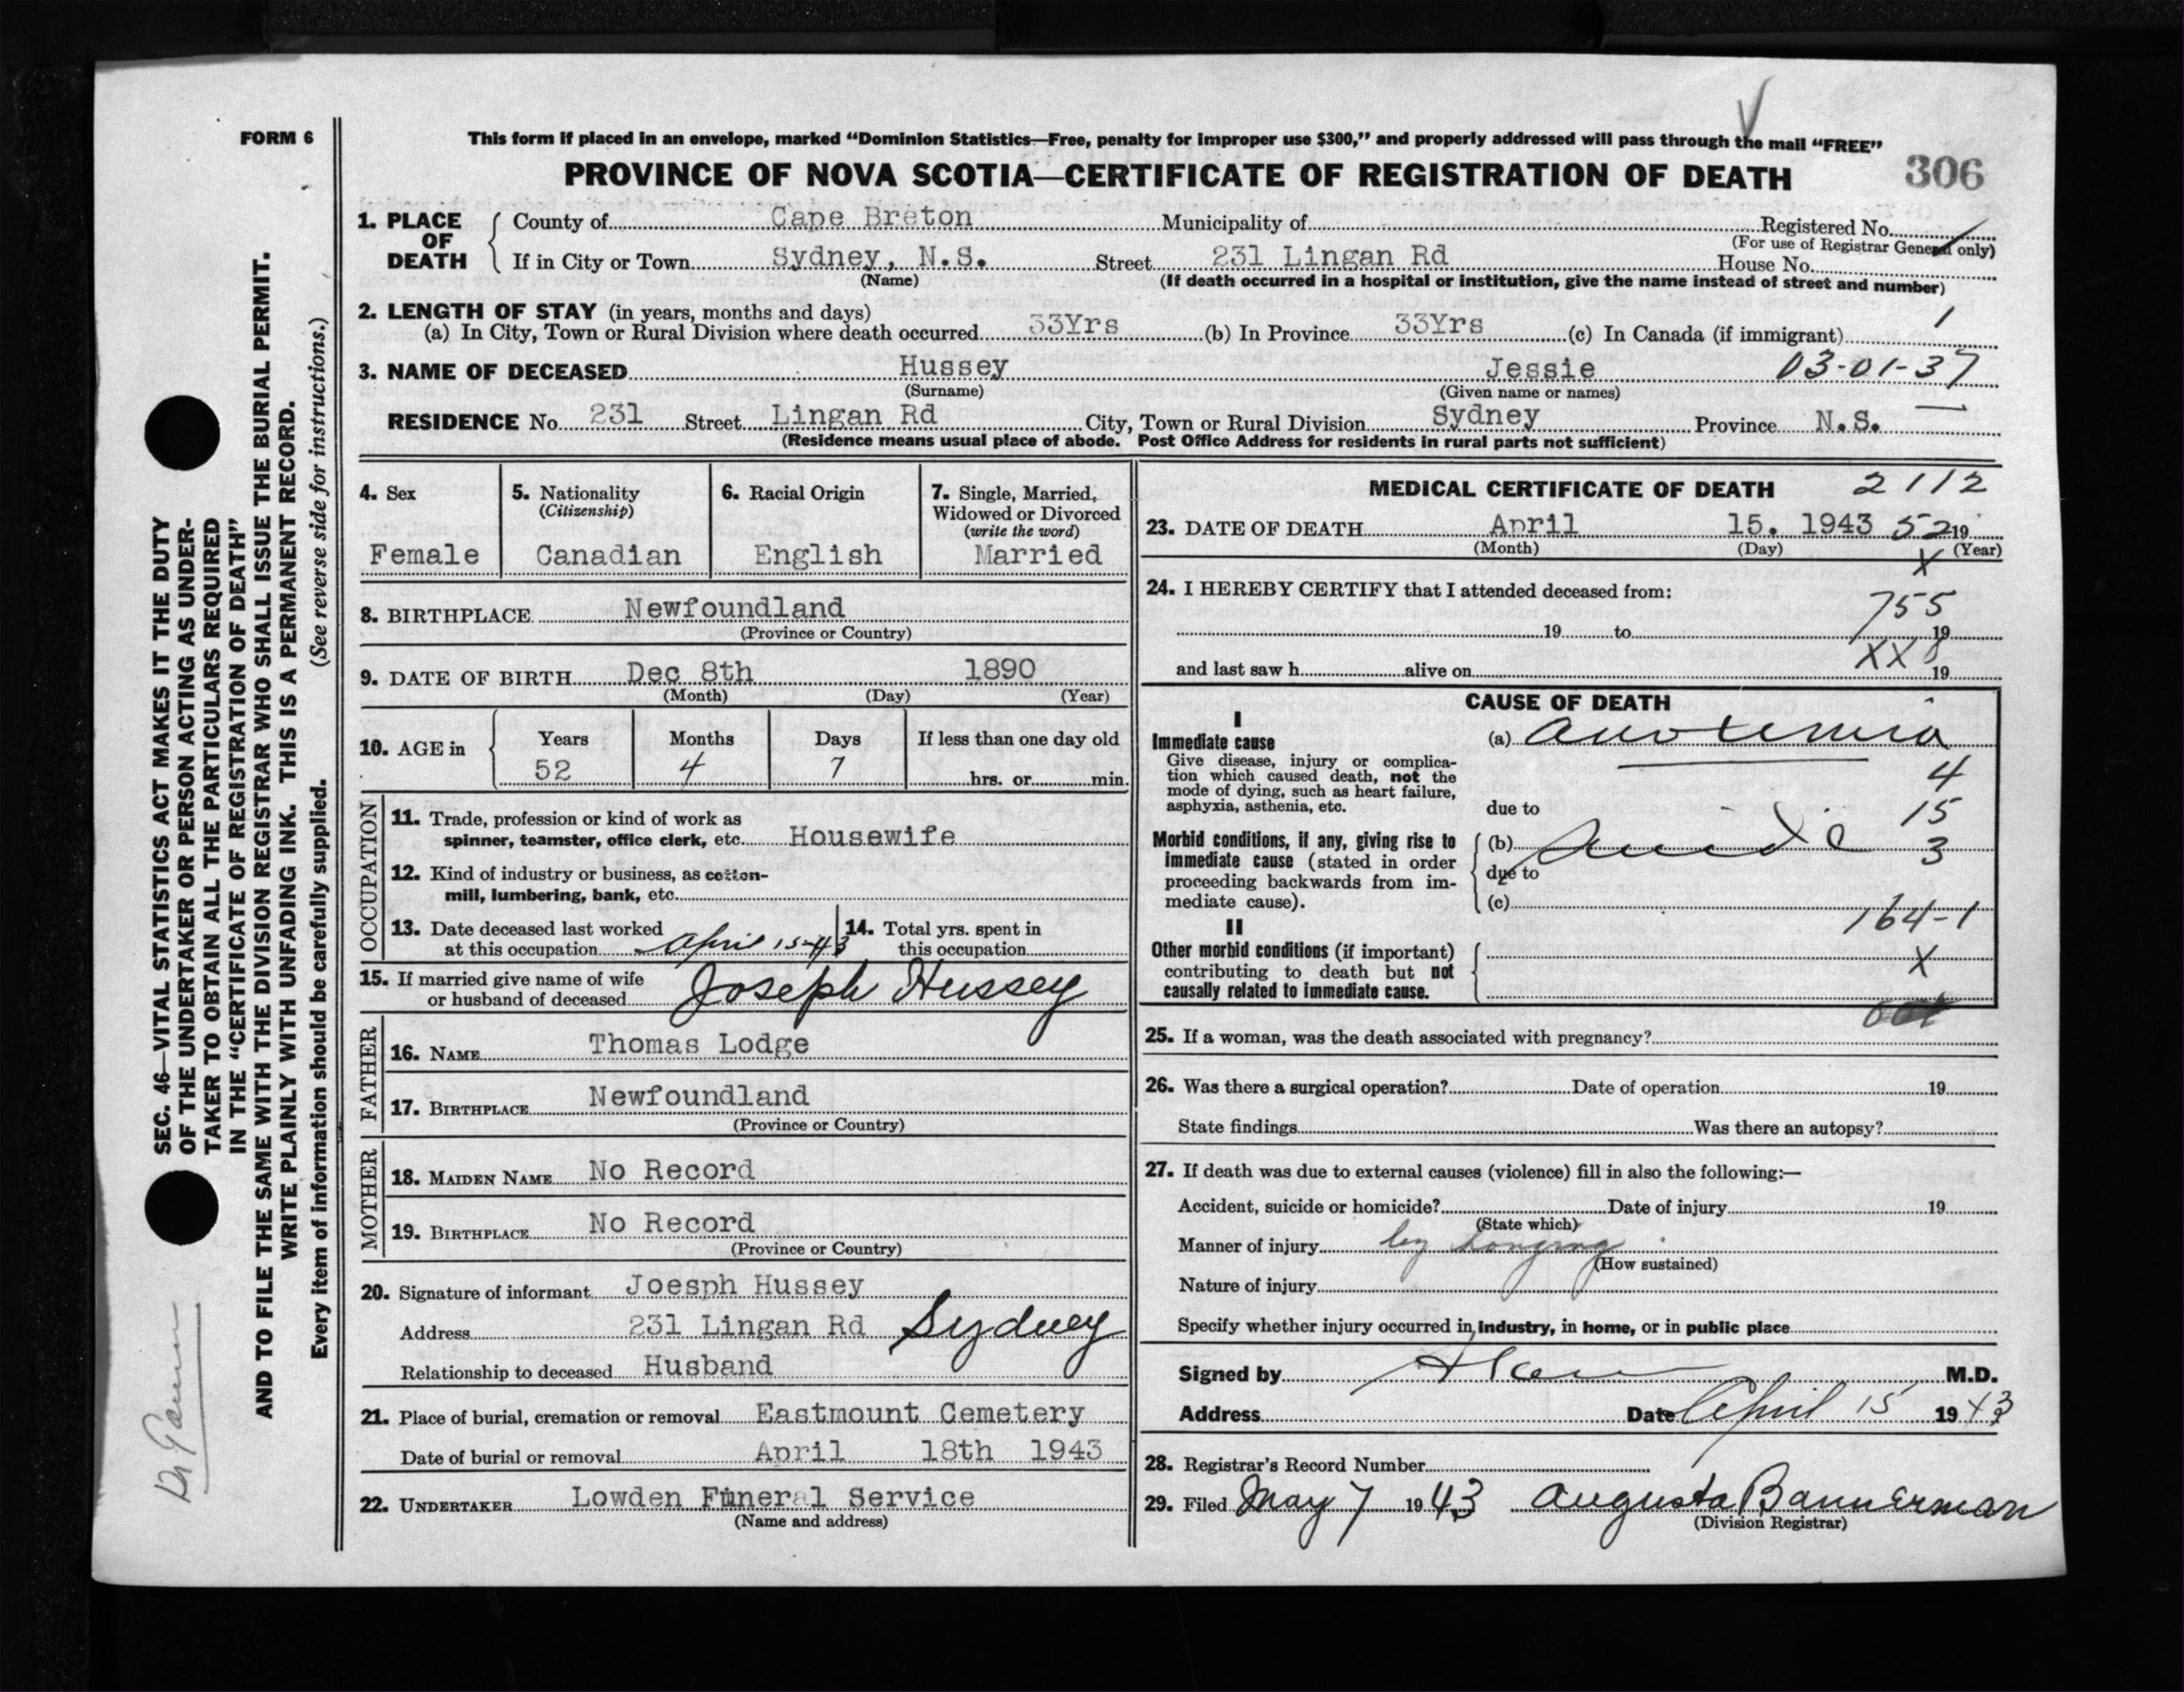 FORM 6
This form if placed in an envelope, marked “Dominion Statistics—Free, penalty for improper use $300,” and properly addressed will pass through the mail “FREE”
PROVINCE OF NOVA SCOTIA—CERTIFICATE OF REGISTRATION OF DEATH 306
1. PLACE OF DEATH
County of Cape Breton Municipality of Registered No.
(For use of Registrar General only)
If in City or Town Sydney, N.S. Street 231 Lingan Rd House No.
(Name) (If death occurred in a hospital or institution, give the name instead of street and number)
2. LENGTH OF STAY (in years, months and days) 1
(a) In City, Town or Rural Division where death occurred 33Yrs (b) In Province 33Yrs (c) In Canada (if immigrant)
3. NAME OF DECEASED Hussey Jessie 03-01-37
(Surname) (Given name or names)
RESIDENCE No. 231 Street Lingan Rd City, Town or Rural Division Sydney Province N.S.
(Residence means usual place of abode. Post Office Address for residents in rural parts not sufficient)
4. Sex
Female
5. Nationality
(Citizenship)
Canadian
6. Racial Origin
English
7. Single, Married,
Widowed or Divorced
(write the word)
Married
8. BIRTHPLACE Newfoundland
(Province or Country)
9. DATE OF BIRTH Dec 8th 1890
(Month) (Day) (Year)
10. AGE in Years Months Days If less than one day old
52 4 7 hrs. or min.
OCCUPATION
11. Trade, profession or kind of work as
spinner, teamster, office clerk, etc. Housewife
12. Kind of industry or business, as cotton-
mill, lumbering, bank, etc.
13. Date deceased last worked
at this occupation April 15-43
14. Total yrs. spent in
this occupation
15. If married give name of wife
or husband of deceased Joseph Hussey
FATHER
16. NAME Thomas Lodge
17. BIRTHPLACE Newfoundland
(Province or Country)
MOTHER
18. MAIDEN NAME No Record
19. BIRTHPLACE No Record
(Province or Country)
20. Signature of informant Joesph Hussey
Address 231 Lingan Rd Sydney
Relationship to deceased Husband
21. Place of burial, cremation or removal Eastmount Cemetery
Date of burial or removal April 18th 1943
22. UNDERTAKER Lowden Funeral Service
(Name and address)
MEDICAL CERTIFICATE OF DEATH 2112
23. DATE OF DEATH April 15. 1943 52 19
(Month) (Day) (Year)
X
24. I HEREBY CERTIFY that I attended deceased from:
755
19 to 19
XX 8
and last saw h alive on 19
CAUSE OF DEATH
I
Immediate cause
Give disease, injury or complica-
tion which caused death, not the
mode of dying, such as heart failure,
asphyxia, asthenia, etc.
(a)
4
due to 15
Morbid conditions, if any, giving rise to
immediate cause (stated in order
proceeding backwards from im-
mediate cause).
(b) Suicide 3
due to
(c)
164-1
II
Other morbid conditions (if important)
contributing to death but not
causally related to immediate cause.
X
25. If a woman, was the death associated with pregnancy?
26. Was there a surgical operation? Date of operation 19
State findings Was there an autopsy?
27. If death was due to external causes (violence) fill in also the following:—
Accident, suicide or homicide? Date of injury 19
(State which)
Manner of injury by hanging
(How sustained)
Nature of injury
Specify whether injury occurred in industry, in home, or in public place
Signed by M.D.
Address Date April 15 1943
28. Registrar's Record Number
29. Filed May 7 1943 Augusta Bannerman
(Division Registrar)
SEC. 46—VITAL STATISTICS ACT MAKES IT THE DUTY
OF THE UNDERTAKER OR PERSON ACTING AS UNDER-
TAKER TO OBTAIN ALL THE PARTICULARS REQUIRED
IN THE “CERTIFICATE OF REGISTRATION OF DEATH”
AND TO FILE THE SAME WITH THE DIVISION REGISTRAR WHO SHALL ISSUE THE BURIAL PERMIT.
WRITE PLAINLY WITH UNFADING INK. THIS IS A PERMANENT RECORD.
Every item of information should be carefully supplied. (See reverse side for instructions.)
Dr